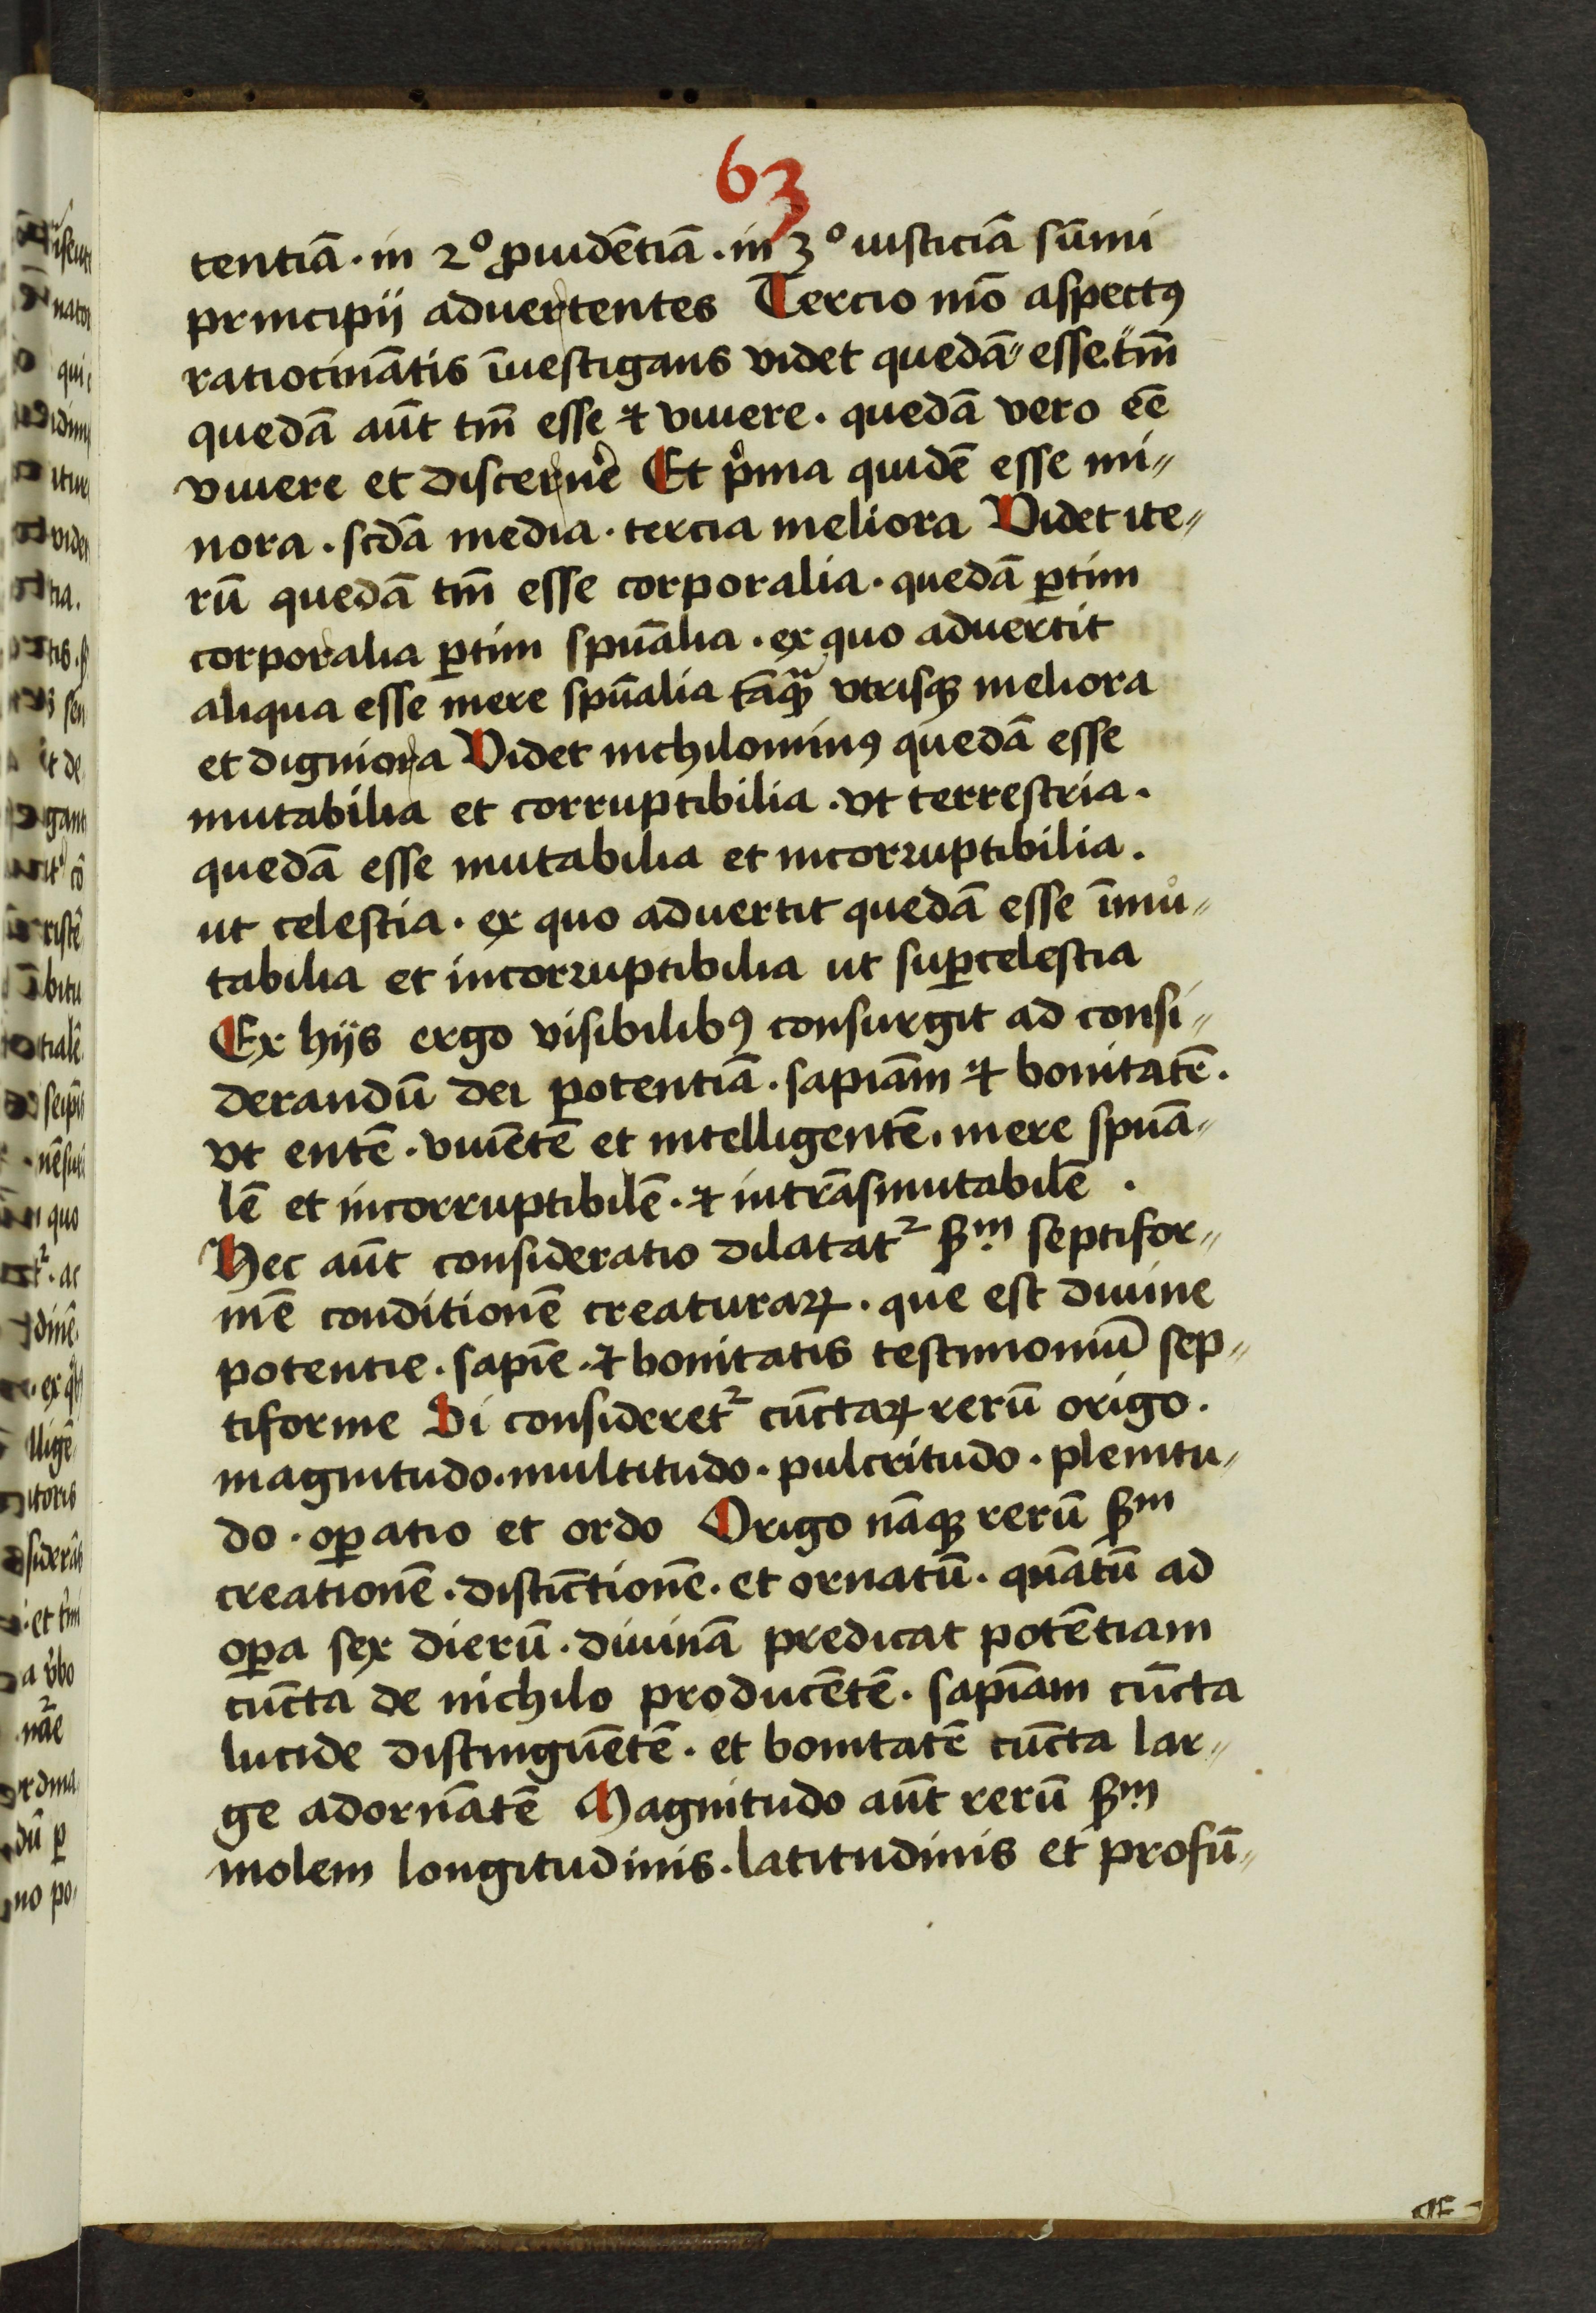 63
tentiā · in 2º ꝓuidētiā · in 3º iusticiā sūmi
principij aduertentes Tercio mō aspectꝰ
ratiocinātis īuestigans videt quedā esse tm̄
quedā aūt tm̄ esse ⁊ viuere · quedā vero eē
viuere et discernẻ Et pͥma quidē esse mi〃
nora · scdā media · tercia meliora Videt ite〃
rū quedā tm̄ esse corporalia · quedā ꝑtim
corporalia ꝑtim spūalia · ex quo aduertit
aliqua esse mere spūalia tāqꝫᵃ vtrisqꝫ meliora
et digniora Videt nichilominꝰ quedā esse
mutabilia et corruptibilia · vt terrestria ·
quedā esse mutabilia et incorruptibilia ·
ut celestia · ex quo aduertit quedā esse īmu〃
tabilia et incorruptibilia ut suꝑcelestia
Ex hijs ergo visibilibꝰ consurgit ad consi〃
derandū dei potentiā · sapiam̄ ⁊ bonitatē ·
vt entē · viuētē et intelligentē · mere spūa〃
lē et incorruptibilē · ⁊ intrāsmutabilē ·
Hec aūt consideratio dilatat² ẜm septifor〃
mē conditionē creaturaꝝ · que est diuine
potentie · sapīe · ⁊ bonitatis testimoniū sep〃
tiforme Si consideret² cūctaꝝ rerū origo ·
magnitudo · multitudo · pulcritudo · plenitu〃
do · oꝑatio et ordo Origo nāqꝫ rerū ẜm
creationē · distīctionē · et ornatū · quātū ad
oꝑa sex dierū · diuinā predicat potētiam
cūcta de nichilo producētē · sapīam cūcta
lucide distinguētē · et bonitatē cūcta lar〃
ge adornātē Magnitudo aūt rerū ẜm
molem longitudinis · latitudinis et profū〃